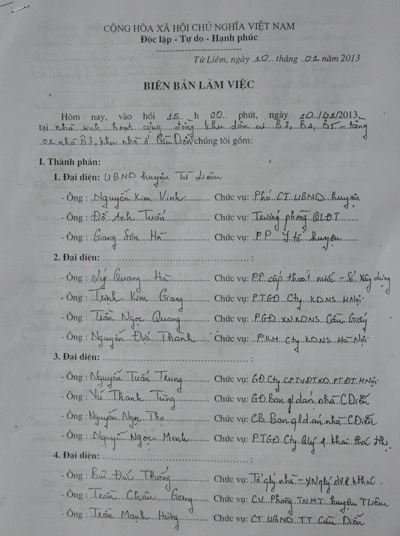 CỘNG HÒA XÃ HỘI CHỦ NGHĨA VIỆT NAM
Độc lập - Tự do - Hạnh phúc
Từ Liêm, ngày 10 tháng 01 năm 2013
BIÊN BẢN LÀM VIỆC
Hôm nay, vào hồi 15 h 00 phút, ngày 10/01/2013
tại nhà sinh hoạt cộng đồng khu dân cư B3, B4, B5 - tầng
01 nhà B3, khu nhà ở Cầu Diễn chúng tôi gồm:
I. Thành phần:
1. Đại diện: UBND huyện Từ Liêm
- Ông : Nguyễn Kim Vinh Chức vụ: Phó CT UBND huyện
- Ông : Đỗ Anh Tuấn Chức vụ: Trưởng phòng QLĐT
- Ông : Giang Sơn Hà Chức vụ: PP Y tế huyện
2. Đại diện:
- Ông : Quang Hà Chức vụ: PP cấp thoát nước - Sở Xây dựng
- Ông : Trịnh Kim Giang Chức vụ: PTGĐ Cty KDNS HNội
- Ông : Trần Ngọc Quang Chức vụ: PGĐ XNKDNS Cầu Giấy
- Ông : Nguyễn Đức Thanh Chức vụ: PKH Cty KDNS Hà Nội
3. Đại diện:
- Ông : Nguyễn Tuấn Trung Chức vụ: GĐ Cty CPDVĐTXD PTĐT HNội
- Ông : Vũ Thanh Tùng Chức vụ: GĐ Ban ql dán nhà CDiễn
- Ông : Nguyễn Ngọc Thọ Chức vụ: CB Ban ql dán nhà CDiễn
- Ông : Nguyễn Ngọc Minh Chức vụ: PTGĐ Cty Qlý & khai thác
4. Đại diện:
- Ông : Bùi Đức Thắng Chức vụ: Tổ qlý nhà - XNqlý
- Ông : Trần Châu Giang Chức vụ: CV Phòng TNMT huyện TLiêm
- Ông : Trần Mạnh Hùng Chức vụ: CT UBND TT Cầu Diễn